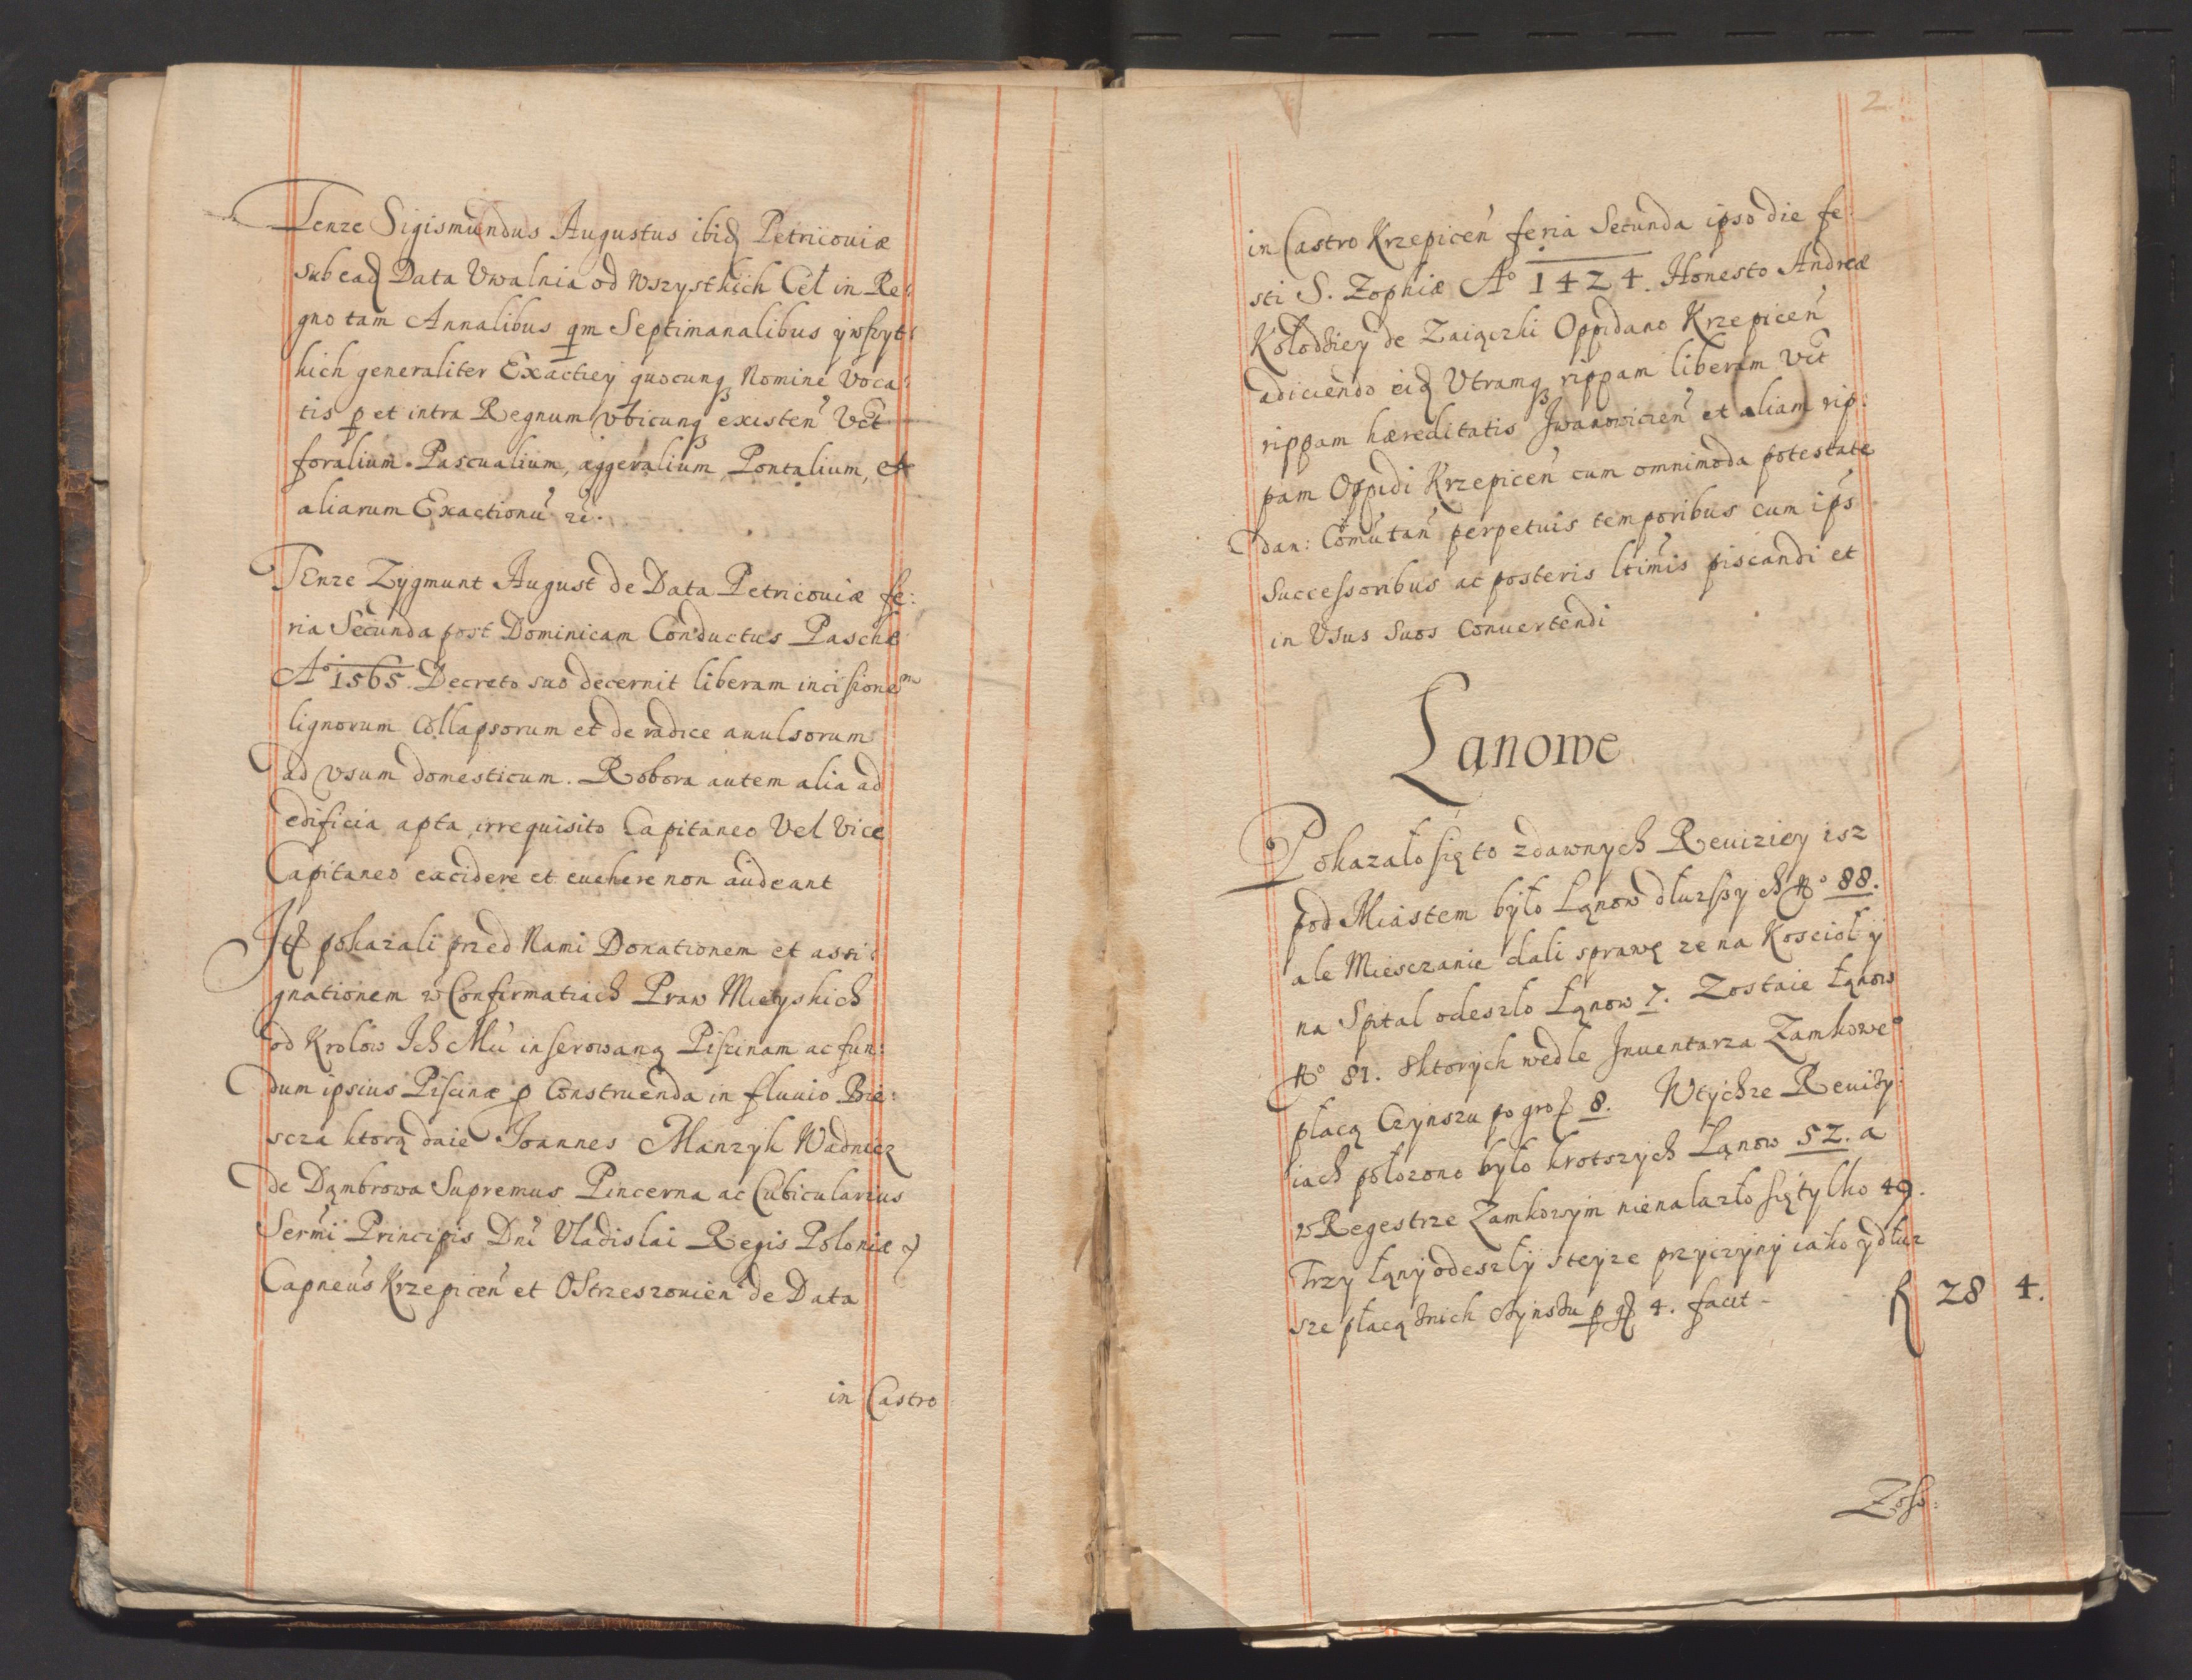 Tenze Sigismundus Augustus ibid Petricouiæ
sub ead Data Vwalnia od Wszysthich Ceł in Re:
gno tam Annalibus qm Septimanalibus ywszyt:
kich generaliter Exactiey quocunq Nomine Voca:
tis p et intra Regnum vbicunq existen Vct
foralium. Pascualium, aggeralium, Pontalium, et
aliarum Exactionu rc.
TEnze Zygmunt August de Data Petricouiæ fe:
ria Secunda post Dominicam Conductus Paschæ
Aº 1565. Decreto suo decernit liberam incisionem
lignorum Collapsorum et de radice auulsorum
ad vsum domesticum. Robora autem alia ad
edificia apta, irrequisito Capitaneo Vel Vice
Capitaneo excidere et euehere non audeant
It pokazali przed Nami Donationem et assi:
gnationem w Confirmatiach Praw Mieyskich
od Krolow Ich Mci inserowaną Piscinam ac fun:
dum ipsius Piscinæ p Construenda in fluuio Bie:
scza ktorą daie Joannes Manzyk Wadnicz
de Dąmbrowa Supremus Pincerna ac Cubicularius
Sermi Principis Dni Vladislai Regis Poloniæ
Capneus Krzepicen et Ostrzeszouien de Data
in Castro
2
in Castro Krzepicen feria Secunda ipso die fe:
sti S. Zophiæ Aº 1424. Honesto Andreæ
Kołodziey de Zaiączki Oppidano Krzepicen
adiciendo eid Vtramq rippam liberam Vct
rippam hæreditatis Jwanowicien et aliam rip:
pam Oppidi Krzepicen cum omnimoda potestate
dan: Comutan perpetuis temporibus cum ips
Successoribus ac posteris ltimis piscandi et
in Vsus Suos Conuertendi
Lanowe
Pokazało się to zdawnych Reuiziey isz
pod Miastem było Łąnow dłuzszych Nº 88.
ale Miesczanie dali sprawę ze na Kosciol y
na Spital odeszło Łąnow 7. Zostaie Łąnow
Nº 81. Sktorych wedle Inuentarza Zamkoweº
płacą Czynszu po gros 8. Wtychze Reuizy:
iach połozono było krotszych Łąnow 52. a
w Regestrze Zamkowym nienalazło się tylko 49.
Trzy Łąny odeszly steyze przyczyny iako y dłuz
sze płacą znich czynszu p gr 4. facit - f 28 4.
Zoso: